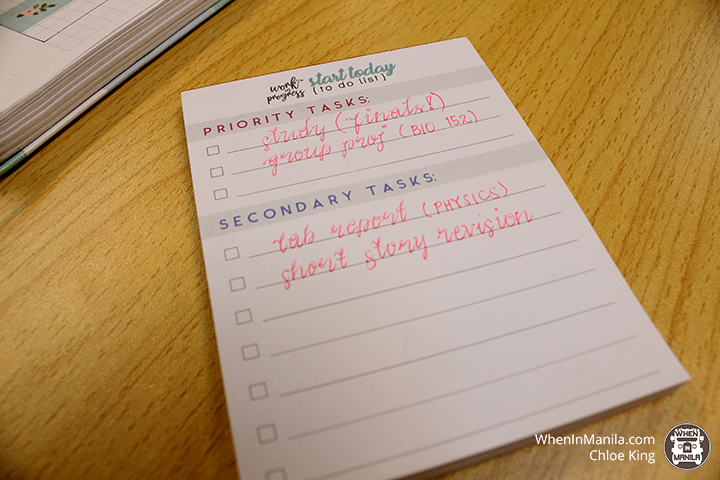 work-in-progress start today
[to do list]
PRIORITY TASKS:
study (finals!)
group proj (BIO 152)
SECONDARY TASKS:
lab report (PHYSICS)
short story revision
WhenInManila.com
Chloe King
WHEN IN MANILA